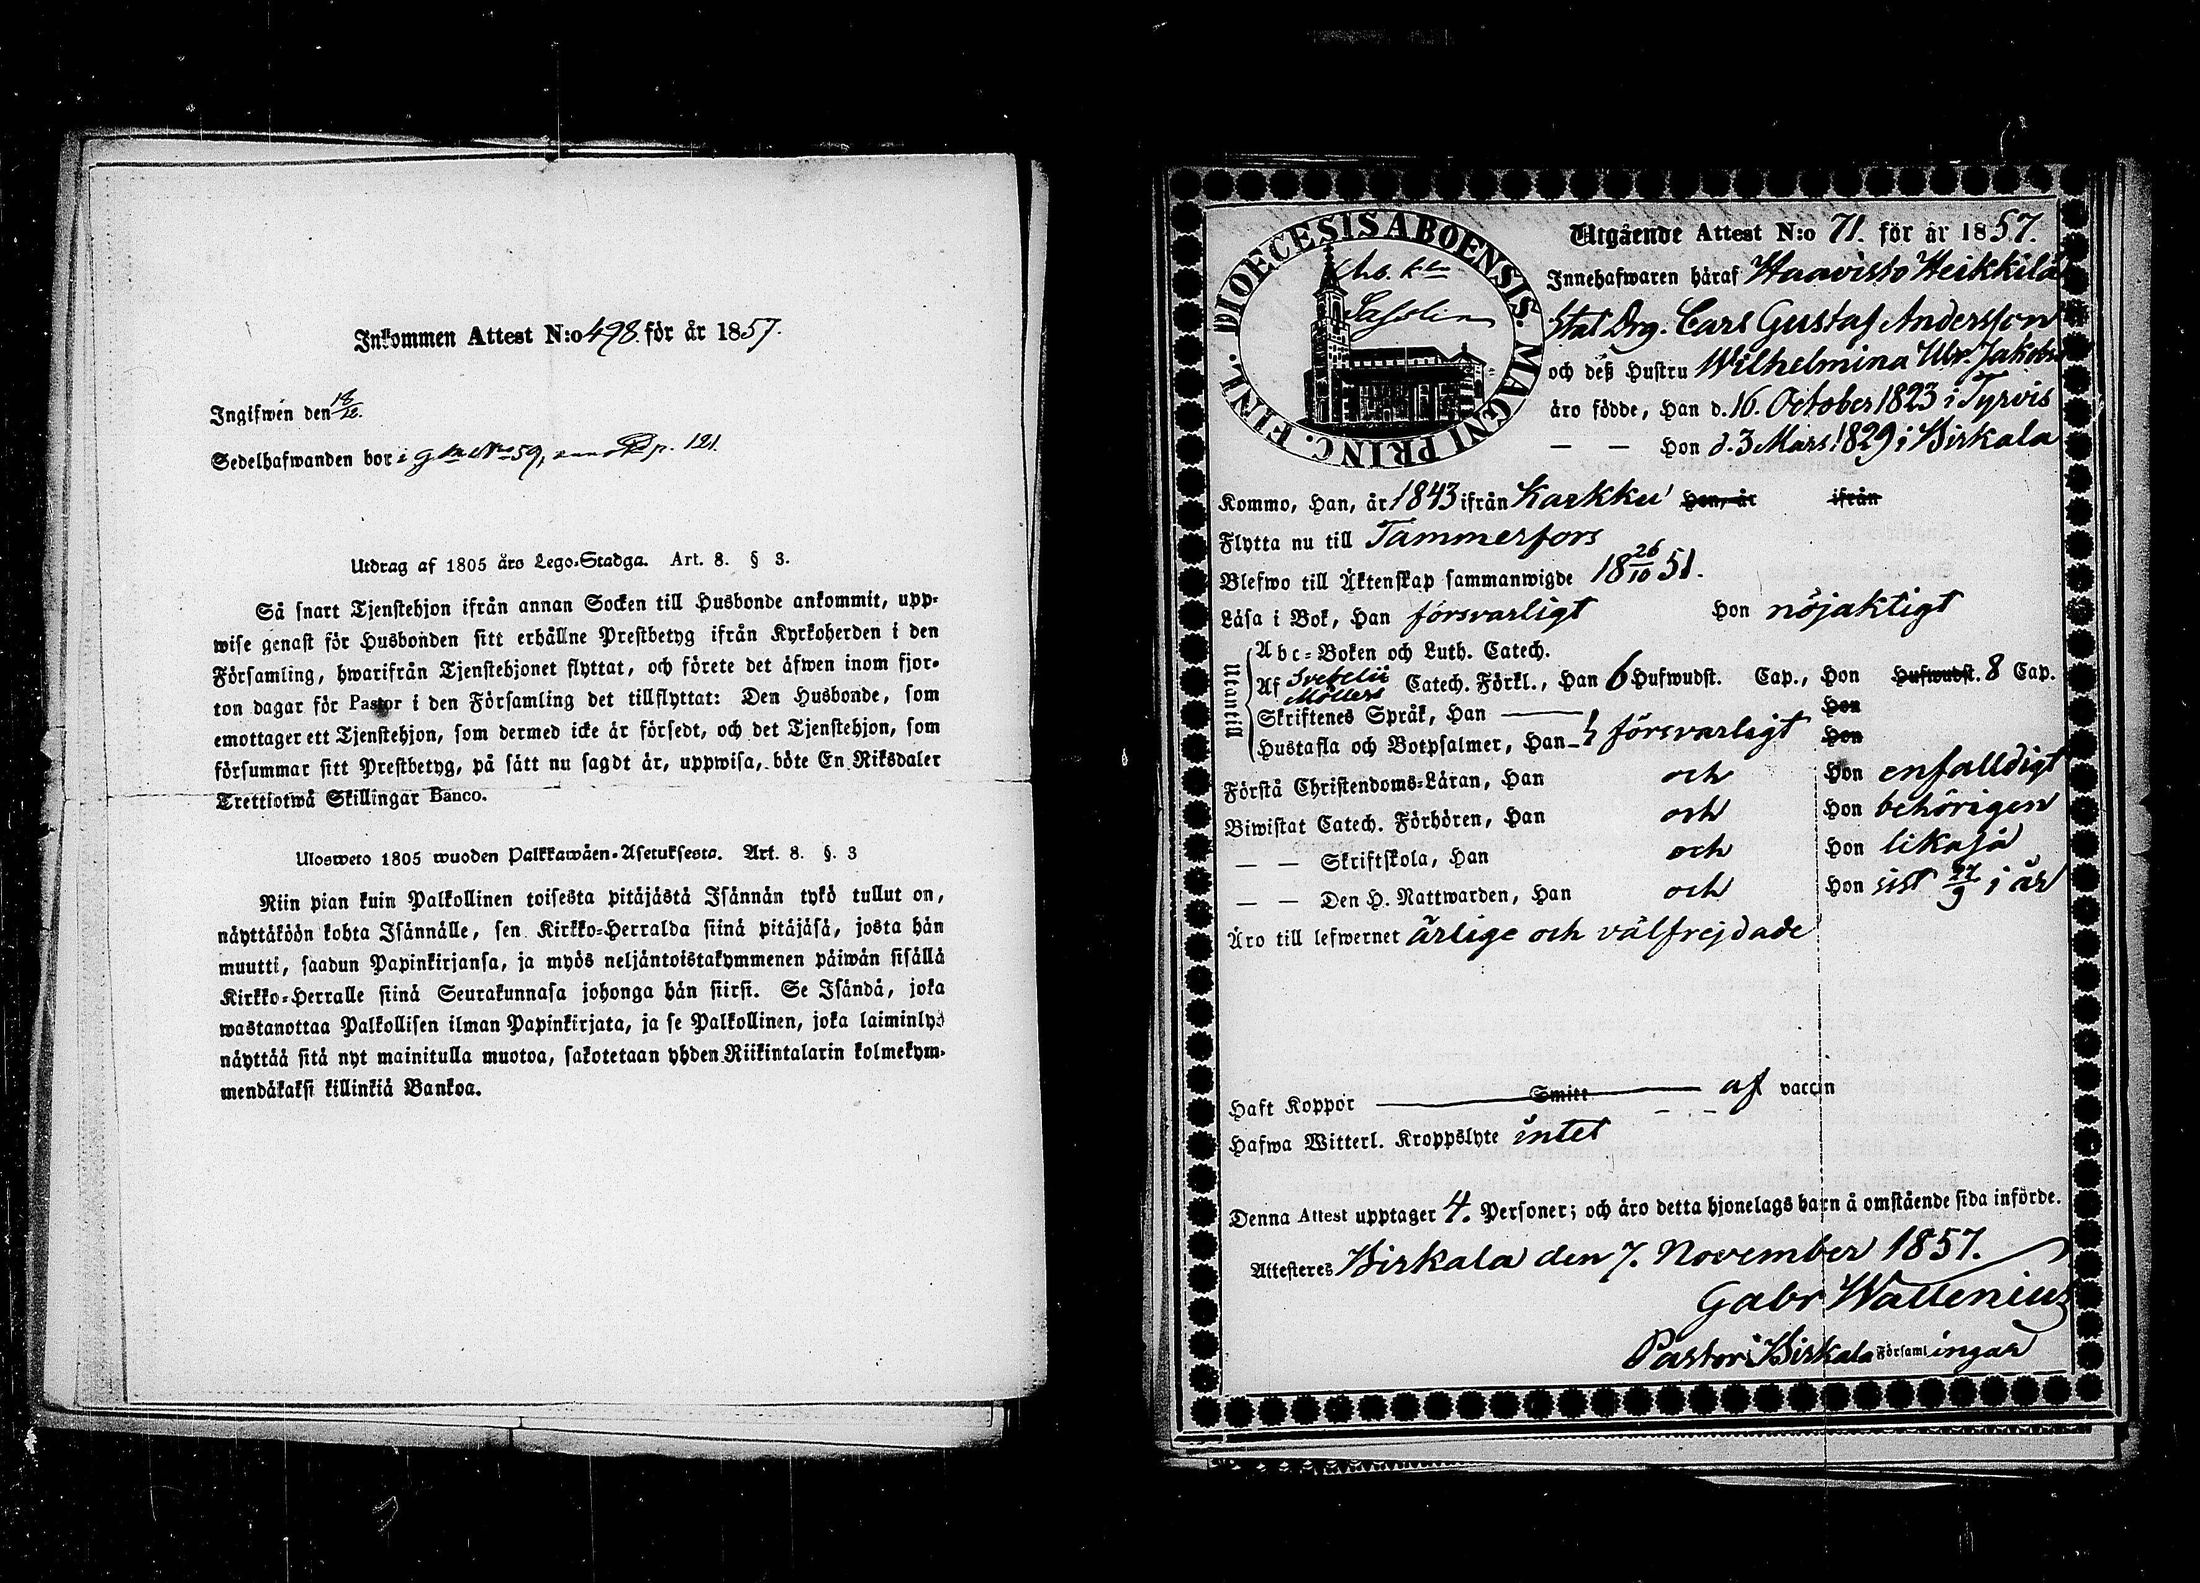 Inkommen Attest N:o 498. för år 1857.
Ingifwen den 18/12.
Sedelhafwanden bor i g No 59, p. 121.
Utdrag af 1805 års Lego-Stadga. Art. 8. § 3.
Så snart Tjenstehjon ifrån annan Socken till Husbonde ankommit, upp-
wise genast för Husbonden sitt erhållne Prestbetyg ifrån Kyrkoherden i den
Församling, hwarifrån Tjenstehjonet flyttat, och förete det äfwen inom fjor-
ton dagar för Pastor i den Församling det tillflyttat: Den Husbonde, som
emottager ett Tjenstehjon, som dermed icke är försedt, och det Tjenstehjon, som
försummar sitt Prestbetyg, på sätt nu sagdt är, uppwisa, böte En Riksdaler
Trettiotwå Skillingar Banco.
Ulosweto 1805 wuoden Palkkawäen-Asetuksesta. Art. 8. §. 3
Niin pian kuin Palkollinen toisesta pitäjästä Isännän tykö tullut on,
näyttäköön kohta Isännälle, sen Kirkko-Herralda siinä pitäjäsä, josta hän
muutti, saadun Papinkirjansa, ja myös neljäntoistakymmenen päiwän sisällä
Kirkko-Herralle siinä Seurakunnasa johonga hän siirsi. Se Isändä, joka
wastanottaa Palkollisen ilman Papinkirjata, ja se Palkollinen, joka laiminlyö
näyttää sitä nyt mainitulla muotoa, sakotetaan yhden Riikintalarin kolmekym-
mendäkaksi killinkiä Bankoa.
DIOECESIS ABOENSIS. MAGNI PRINC. FINL.
Utgående Attest N:o 71. för år 1857.
Innehafwaren häraf Haavisto Heikkilä
Stat Drg. Carl Gustaf Andersson
och deß Hustru Wilhelmina Ulr. Jakobs
äro födde, Han d. 16. October 1823 i Tyrvis
— — Hon d. 3 Mars 1829 i Birkala
Kommo, Han, år 1843 ifrån Karkku Hon, år ifrån
Flytta nu till Tammerfors
Blefwo till Äktenskap sammanwigde 18 26/10 51.
Läsa i Bok, Han försvarligt Hon nöjaktigt
Utantill
Abc-Boken och Luth. Catech.
Af Svebelii Möllers Catech. Förkl., Han 6 Hufwudst. Cap., Hon Hufwudst. 8 Cap.
Skriftenes Språk, Han — Hon
Hustafla och Botpsalmer, Han — försvarligt Hon
Förstå Christendoms-Läran, Han och Hon enfalldigt
Biwistat Catech. Förhören, Han och Hon behörigen
— — Skriftskola, Han och Hon likaså
— — Den H. Nattwarden, Han och Hon sist 27/9 i år
Äro till lefwernet ärlige och välfrejdade
Haft Koppor — Smitt — af vaccin
Hafwa Witterl. Kroppslyte intet
Denna Attest upptager 4. Personer; och äro detta hjonelags barn å omstående sida införde.
Attesteres Birkala den 7. November 1857.
Gabr Wallenius
Pastor i Birkala Församlingar